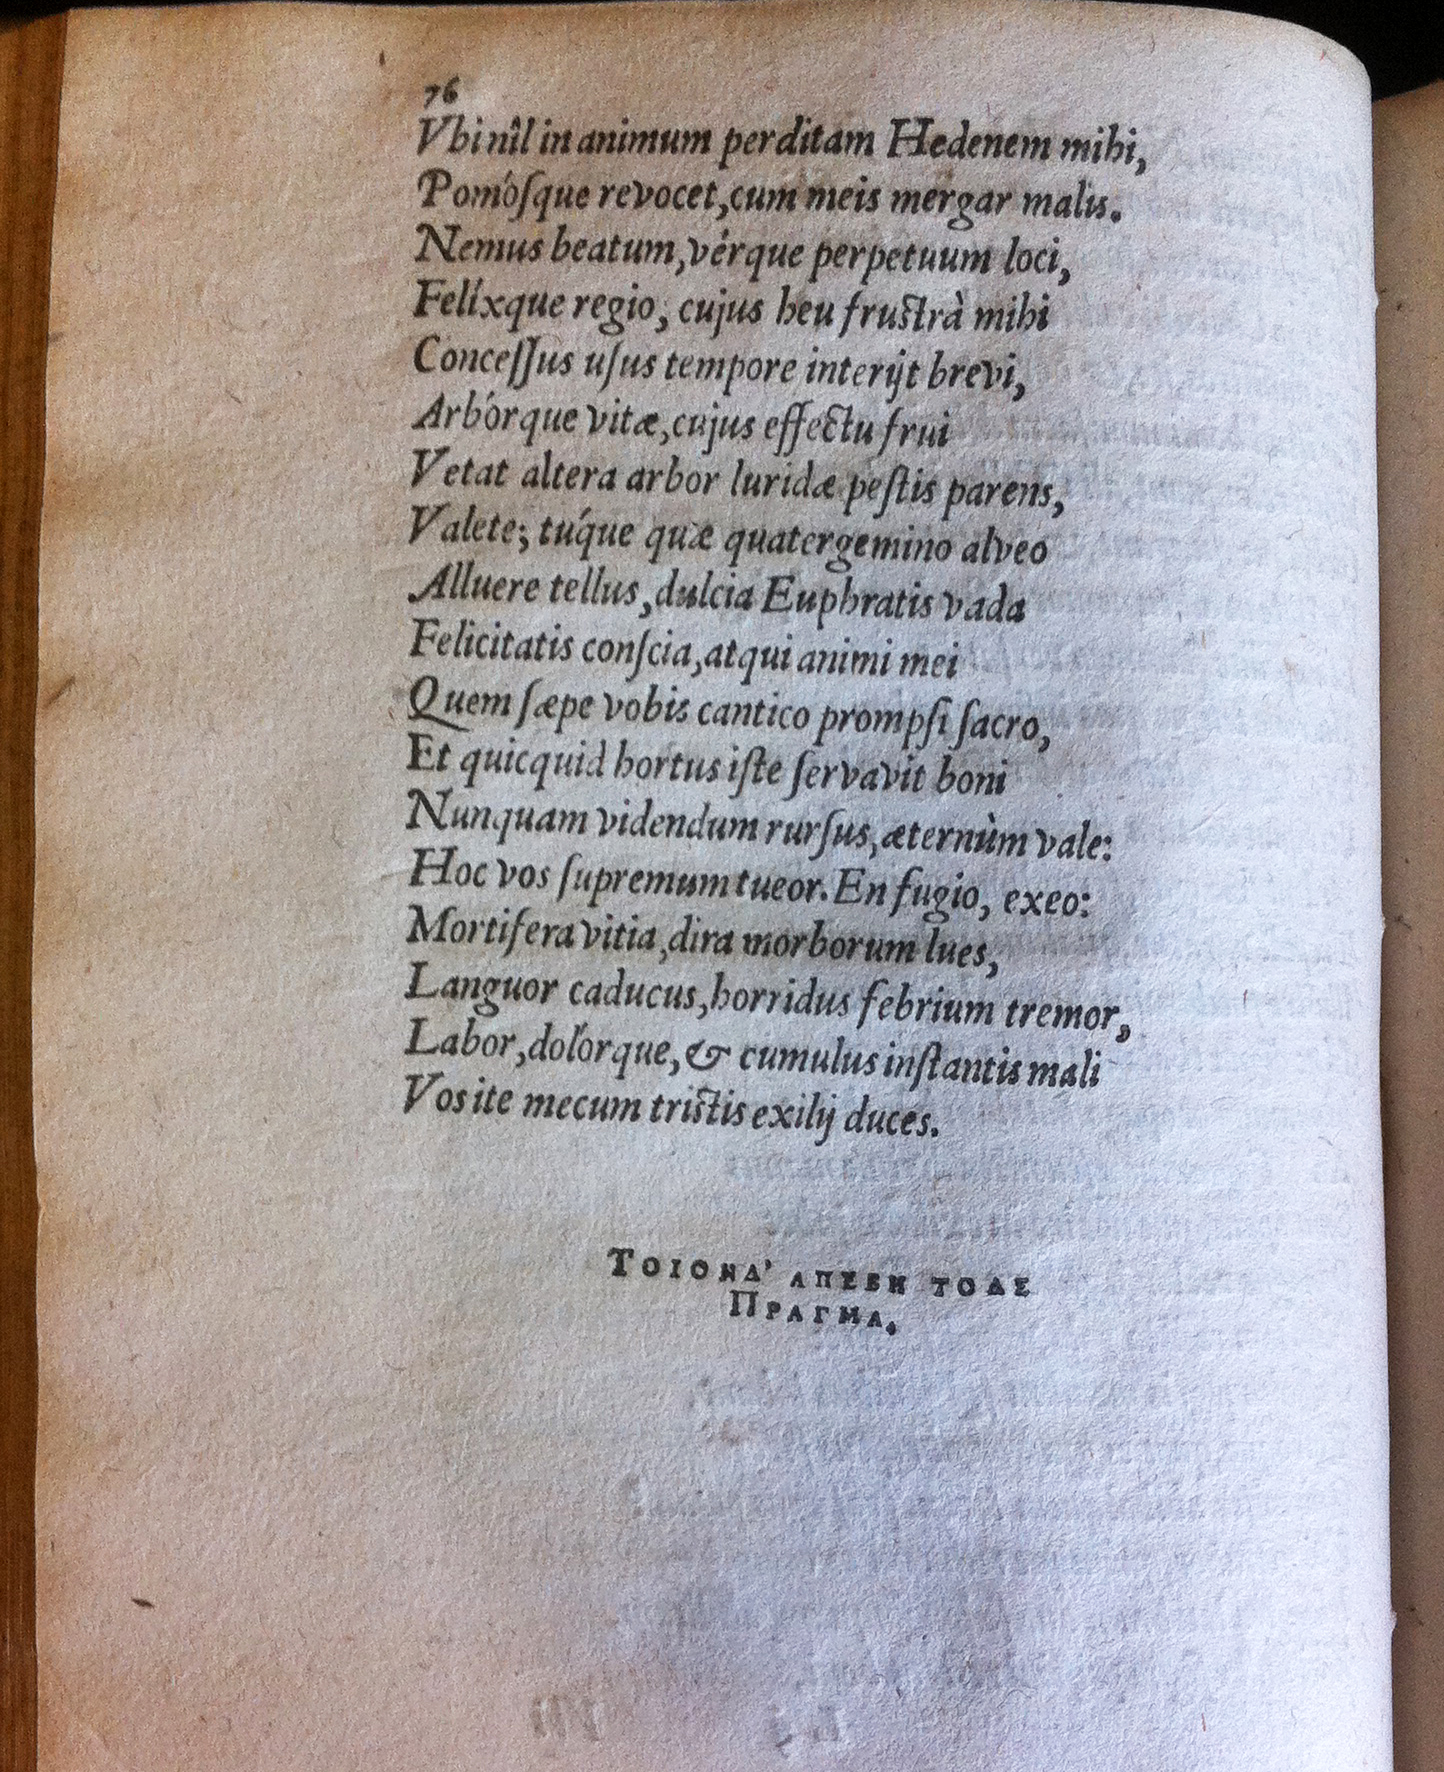 76
Vbi nîl in animum perditam Hedenem mihi,
Pomósque revocet, cum meis mergar malis.
Nemus beatum, vérque perpetuum loci,
Felíxque regio, cujus heu frustrà mihi
Concessus usus tempore interijt brevi,
Arbórque vitæ, cujus effectu frui
Vetat altera arbor luridæ pestis parens,
Valete; túque quæ quatergemino alveo
Alluere tellus, dulcia Euphratis vada
Felicitatis conscia, atqui animi mei
Quem sæpe vobis cantico prompsi sacro,
Et quicquid hortus iste servavit boni
Nunquam videndum rursus, æternùm vale:
Hoc vos supremum tueor. En fugio, exeo:
Mortifera vitia, dira morborum lues,
Languor caducus, horridus febrium tremor,
Labor, dolórque, & cumulus instantis mali
Vos ite mecum tristis exilij duces.
ΤΟΙΟΝΔ' ΑΠΕΒΗ ΤΟΔΕ
ΠΡΑΓΜΑ.